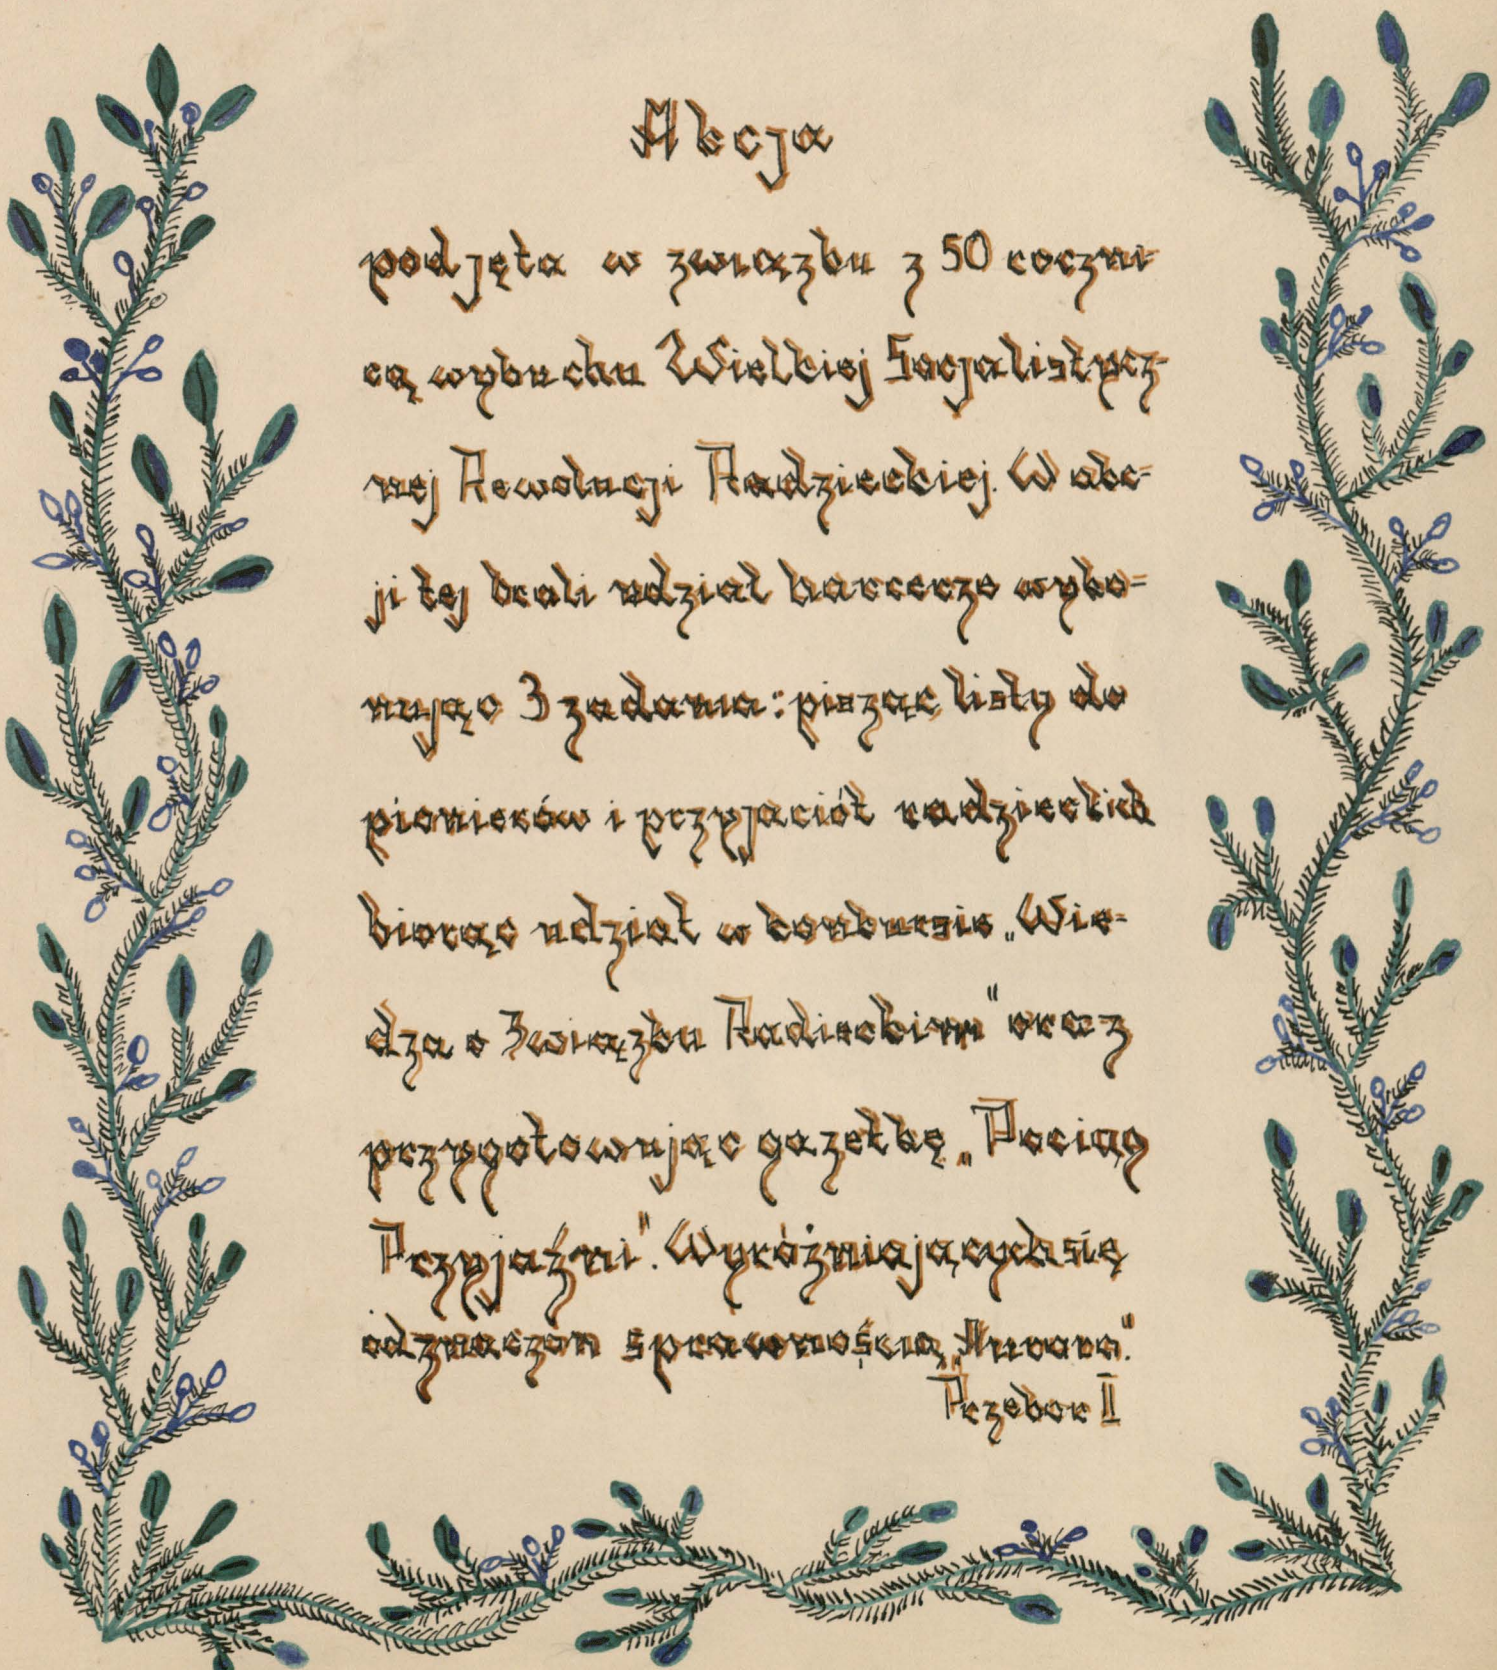 Akcja
podjęta w związku z 50 roczni-
cą wybuchu Wielkiej Socjalistycz-
nej Rewolucji Radzieckiej. W akc-
ji tej brali udział harcerze wyko-
nując 3 zadania: pisząc listy do
pionierów i przyjaciół radzieckich
biorąc udział w konkursie „Wie-
dza o Związku Radieckim" oraz
przygotowując gazetkę „Pociąg
Przyjaźni". Wyróżniających się
odznaczon sprawnością „Aurora".
Przebor I